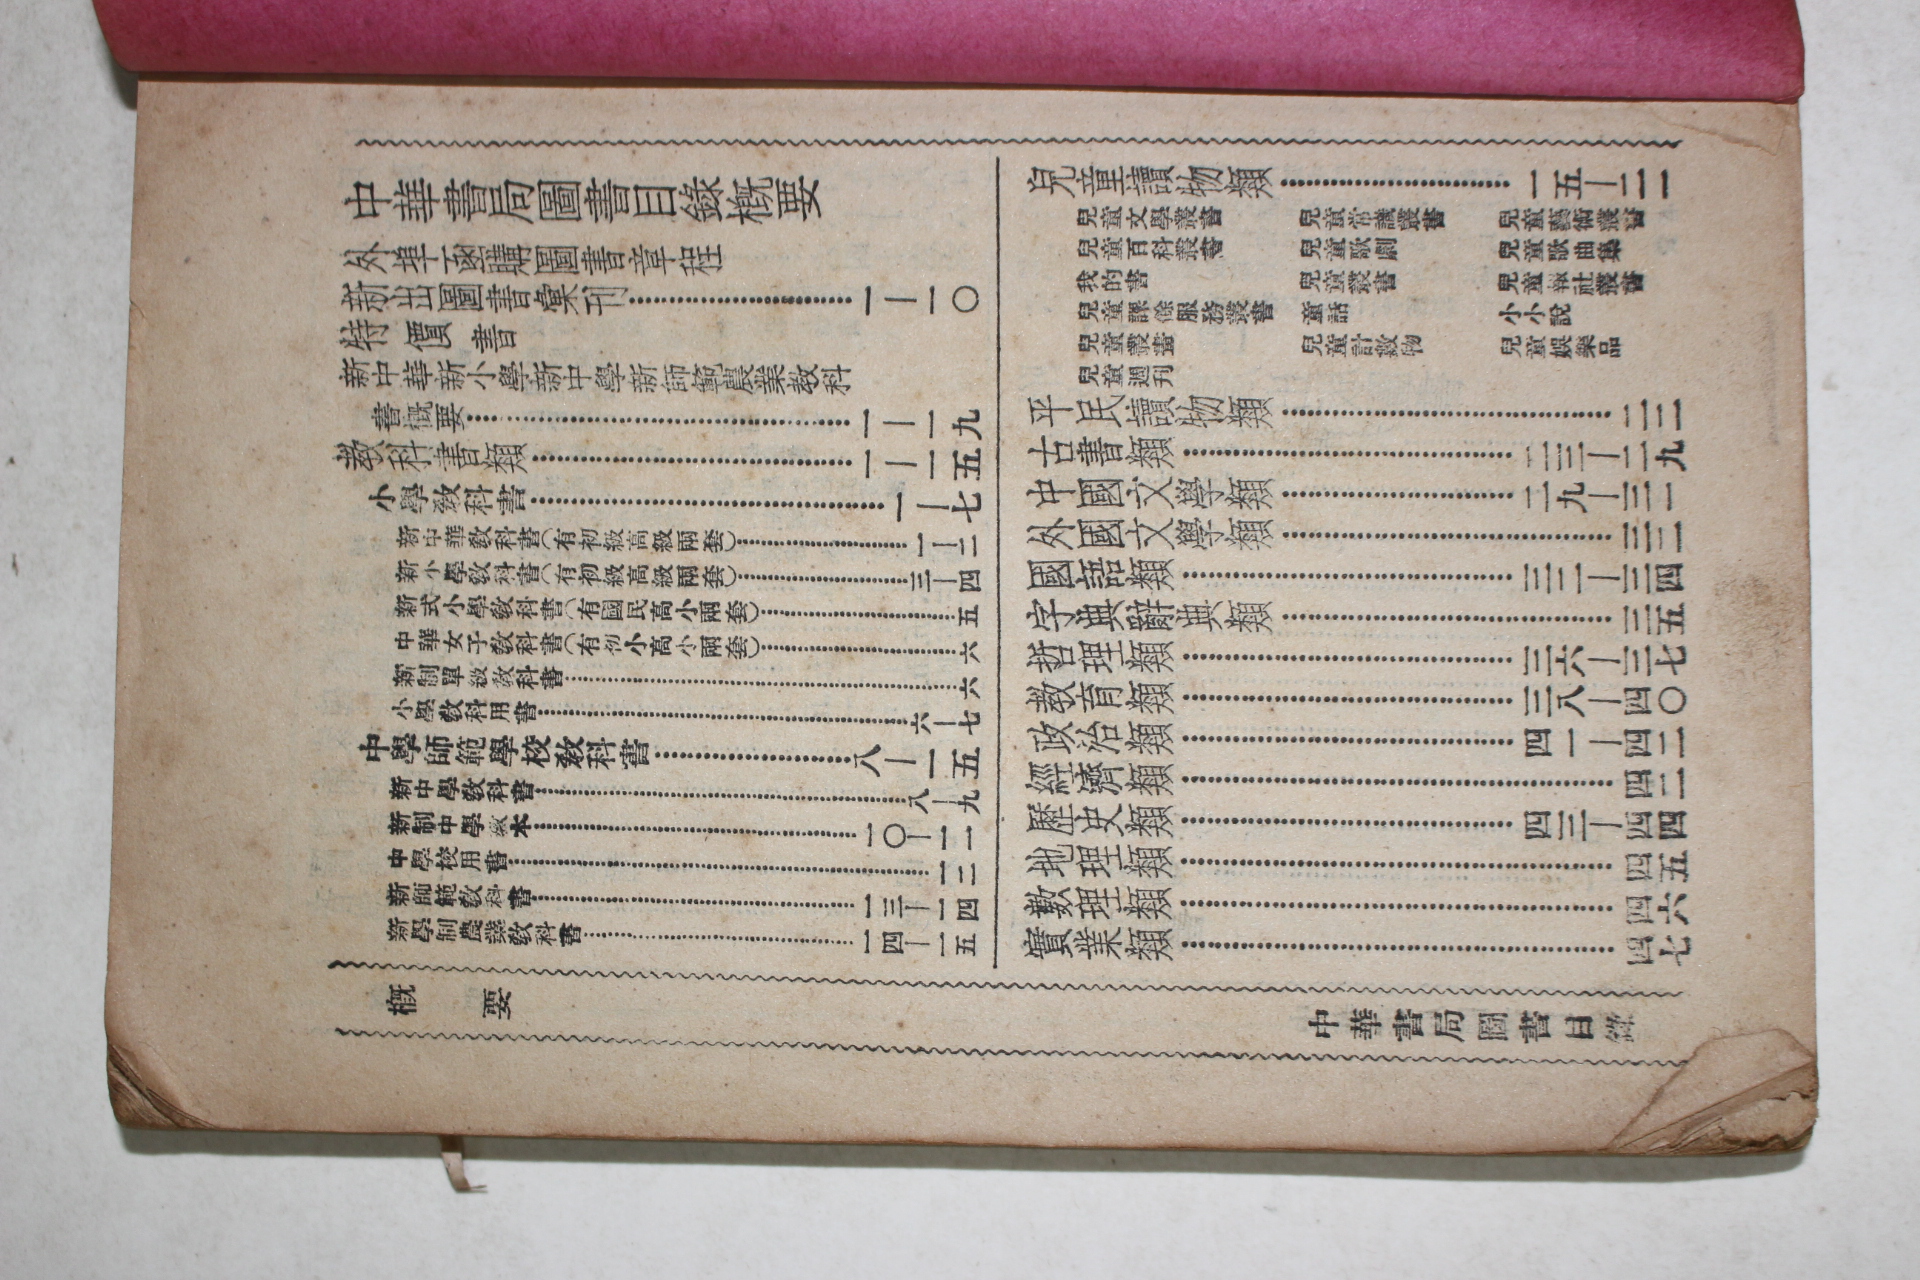 中華書局圖書目錄概要
外埠函購圖書章程
新出圖書彙刊……一—一〇
特價書
新中華新小學新中學新師範農業教科
書概要……一—一九
教科書類……一—一五
小學教科書……一—七
新中華教科書(有初級高級兩套)……一—二
新小學教科書(有初級高級兩套)……三—四
新式小學教科書(有國民高小兩套)……五
中華女子教科書(有初小高小兩套)……六
新制單級教科書……六
小學教科用書……六—七
中學師範學校教科書……八—一五
新中學教科書……八—九
新制中學教本……一〇—一一
中學校用書……一二
新師範教科書……一三—一四
新學制農業教科書……一四—一五
兒童讀物類……一五—二一
兒童文學叢書 兒童常識叢書 兒童藝術叢書
兒童百科叢書 兒童歌劇 兒童歌曲集
我的書 兒童叢書 兒童報社叢書
兒童課餘服務叢書 童話 小小說
兒童叢書 兒童計數物 兒童娛樂品
兒童週刊
平民讀物類……二二
古書類……二三—二九
中國文學類……二九—三一
外國文學類……三二
國語類……三二—三四
字典辭典類……三五
哲理類……三六—三七
教育類……三八—四〇
政治類……四一—四二
經濟類……四二
歷史類……四三—四四
地理類……四五
數理類……四六
實業類……四七
概要
中華書局圖書目錄